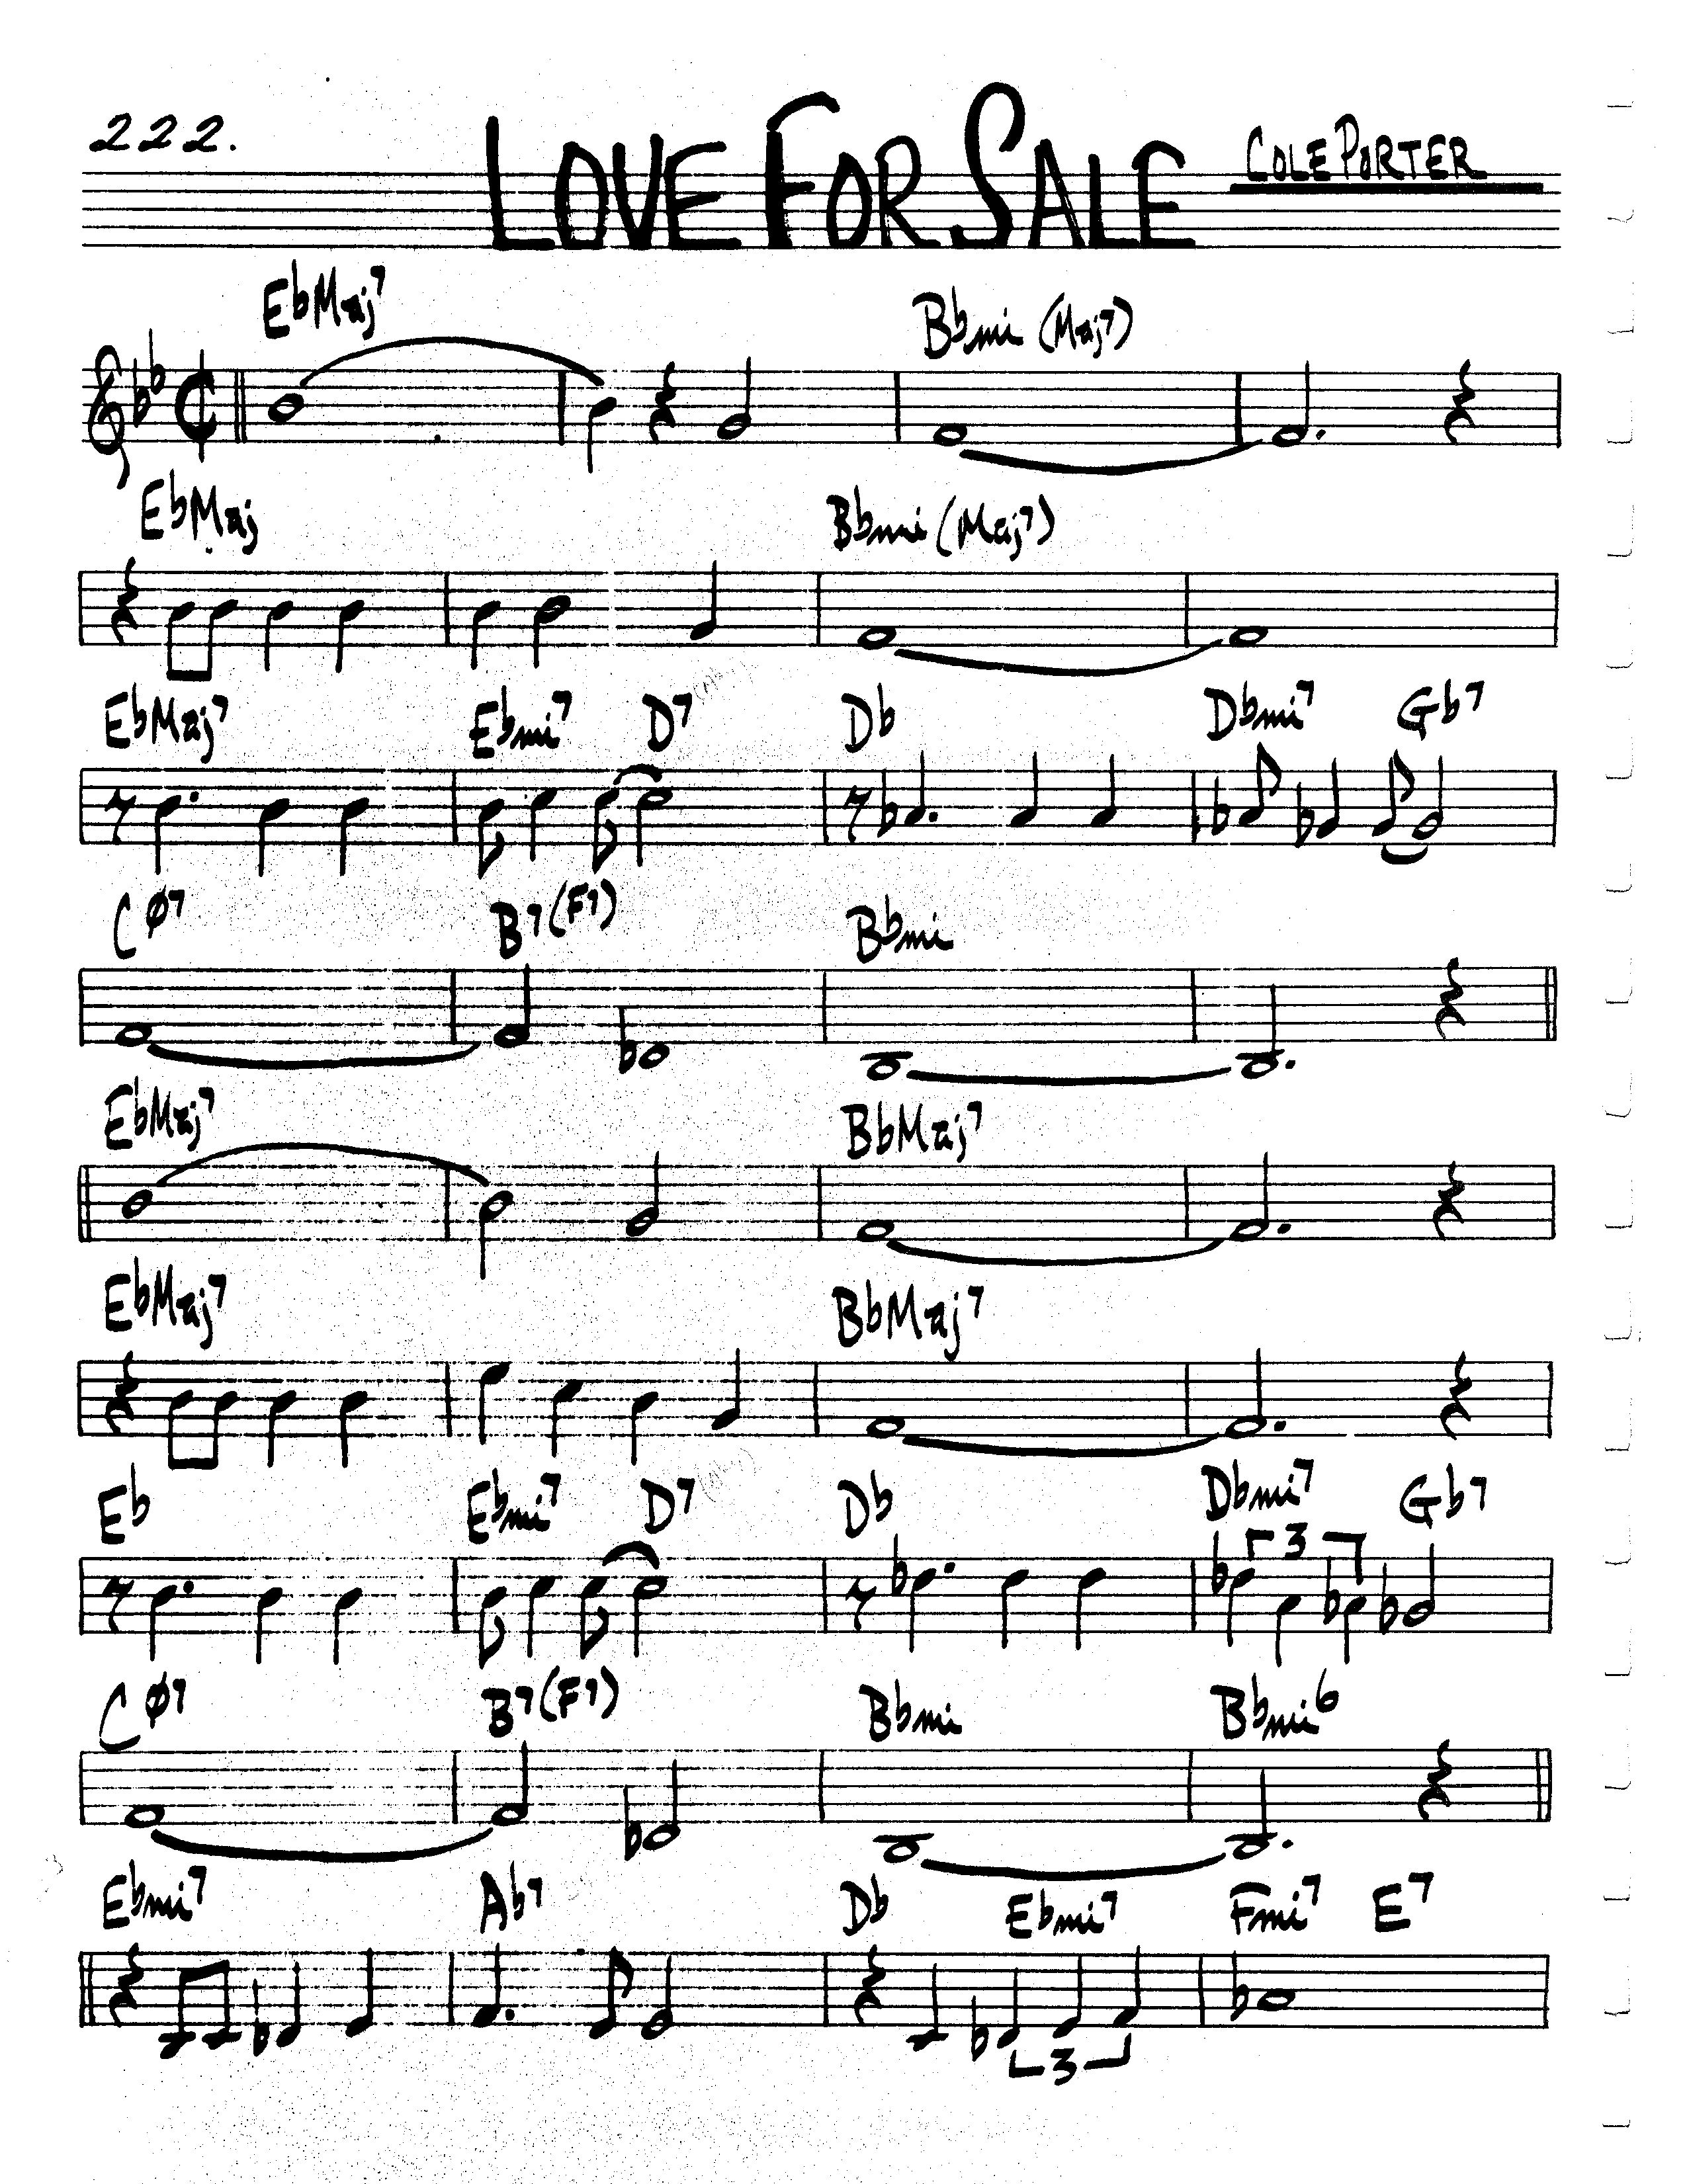 222. LOVE FOR SALE COLE PORTER
EbMaj7 Bbmi (Maj7)
EbMaj Bbmi (Maj7)
EbMaj7 Ebmi7 D7 Db Dbmi7 Gb7
Cø7 B7(F7) Bbmi
EbMaj7 BbMaj7
EbMaj7 BbMaj7
Eb Ebmi7 D7 Db Dbmi7 Gb7
3
Cø7 B7(F7) Bbmi Bbmi6
Ebmi7 Ab7 Db Ebmi7 Fmi7 E7
3